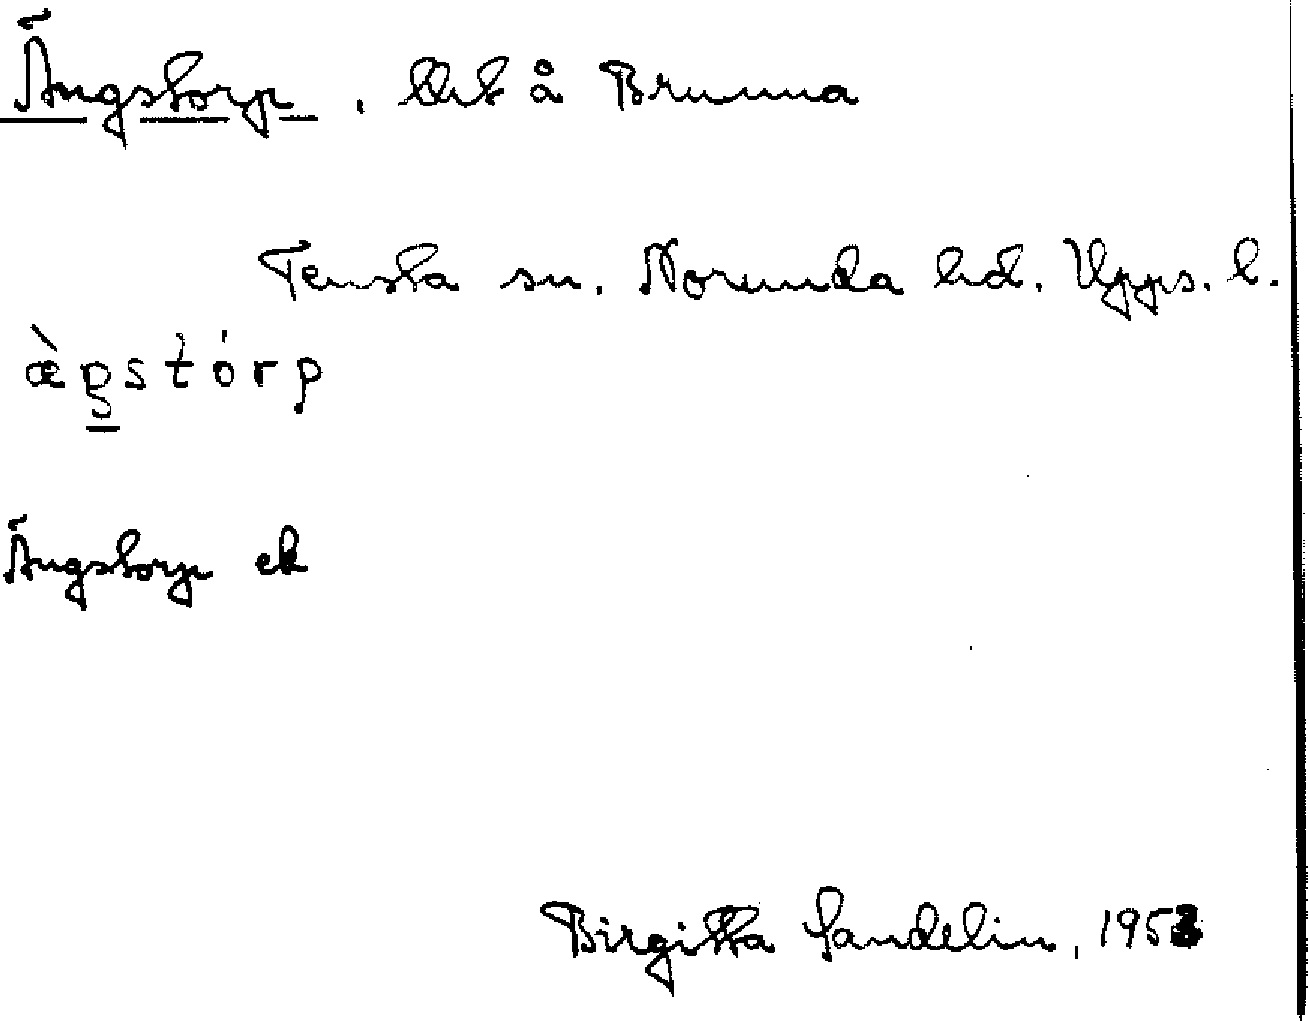 Ängstorp, lht å Brunna
Tensta sn. Norunda hd. Upps. l.
æ̀ŋstórp
Ängstorp ek
Birgitta Sandelin, 1953